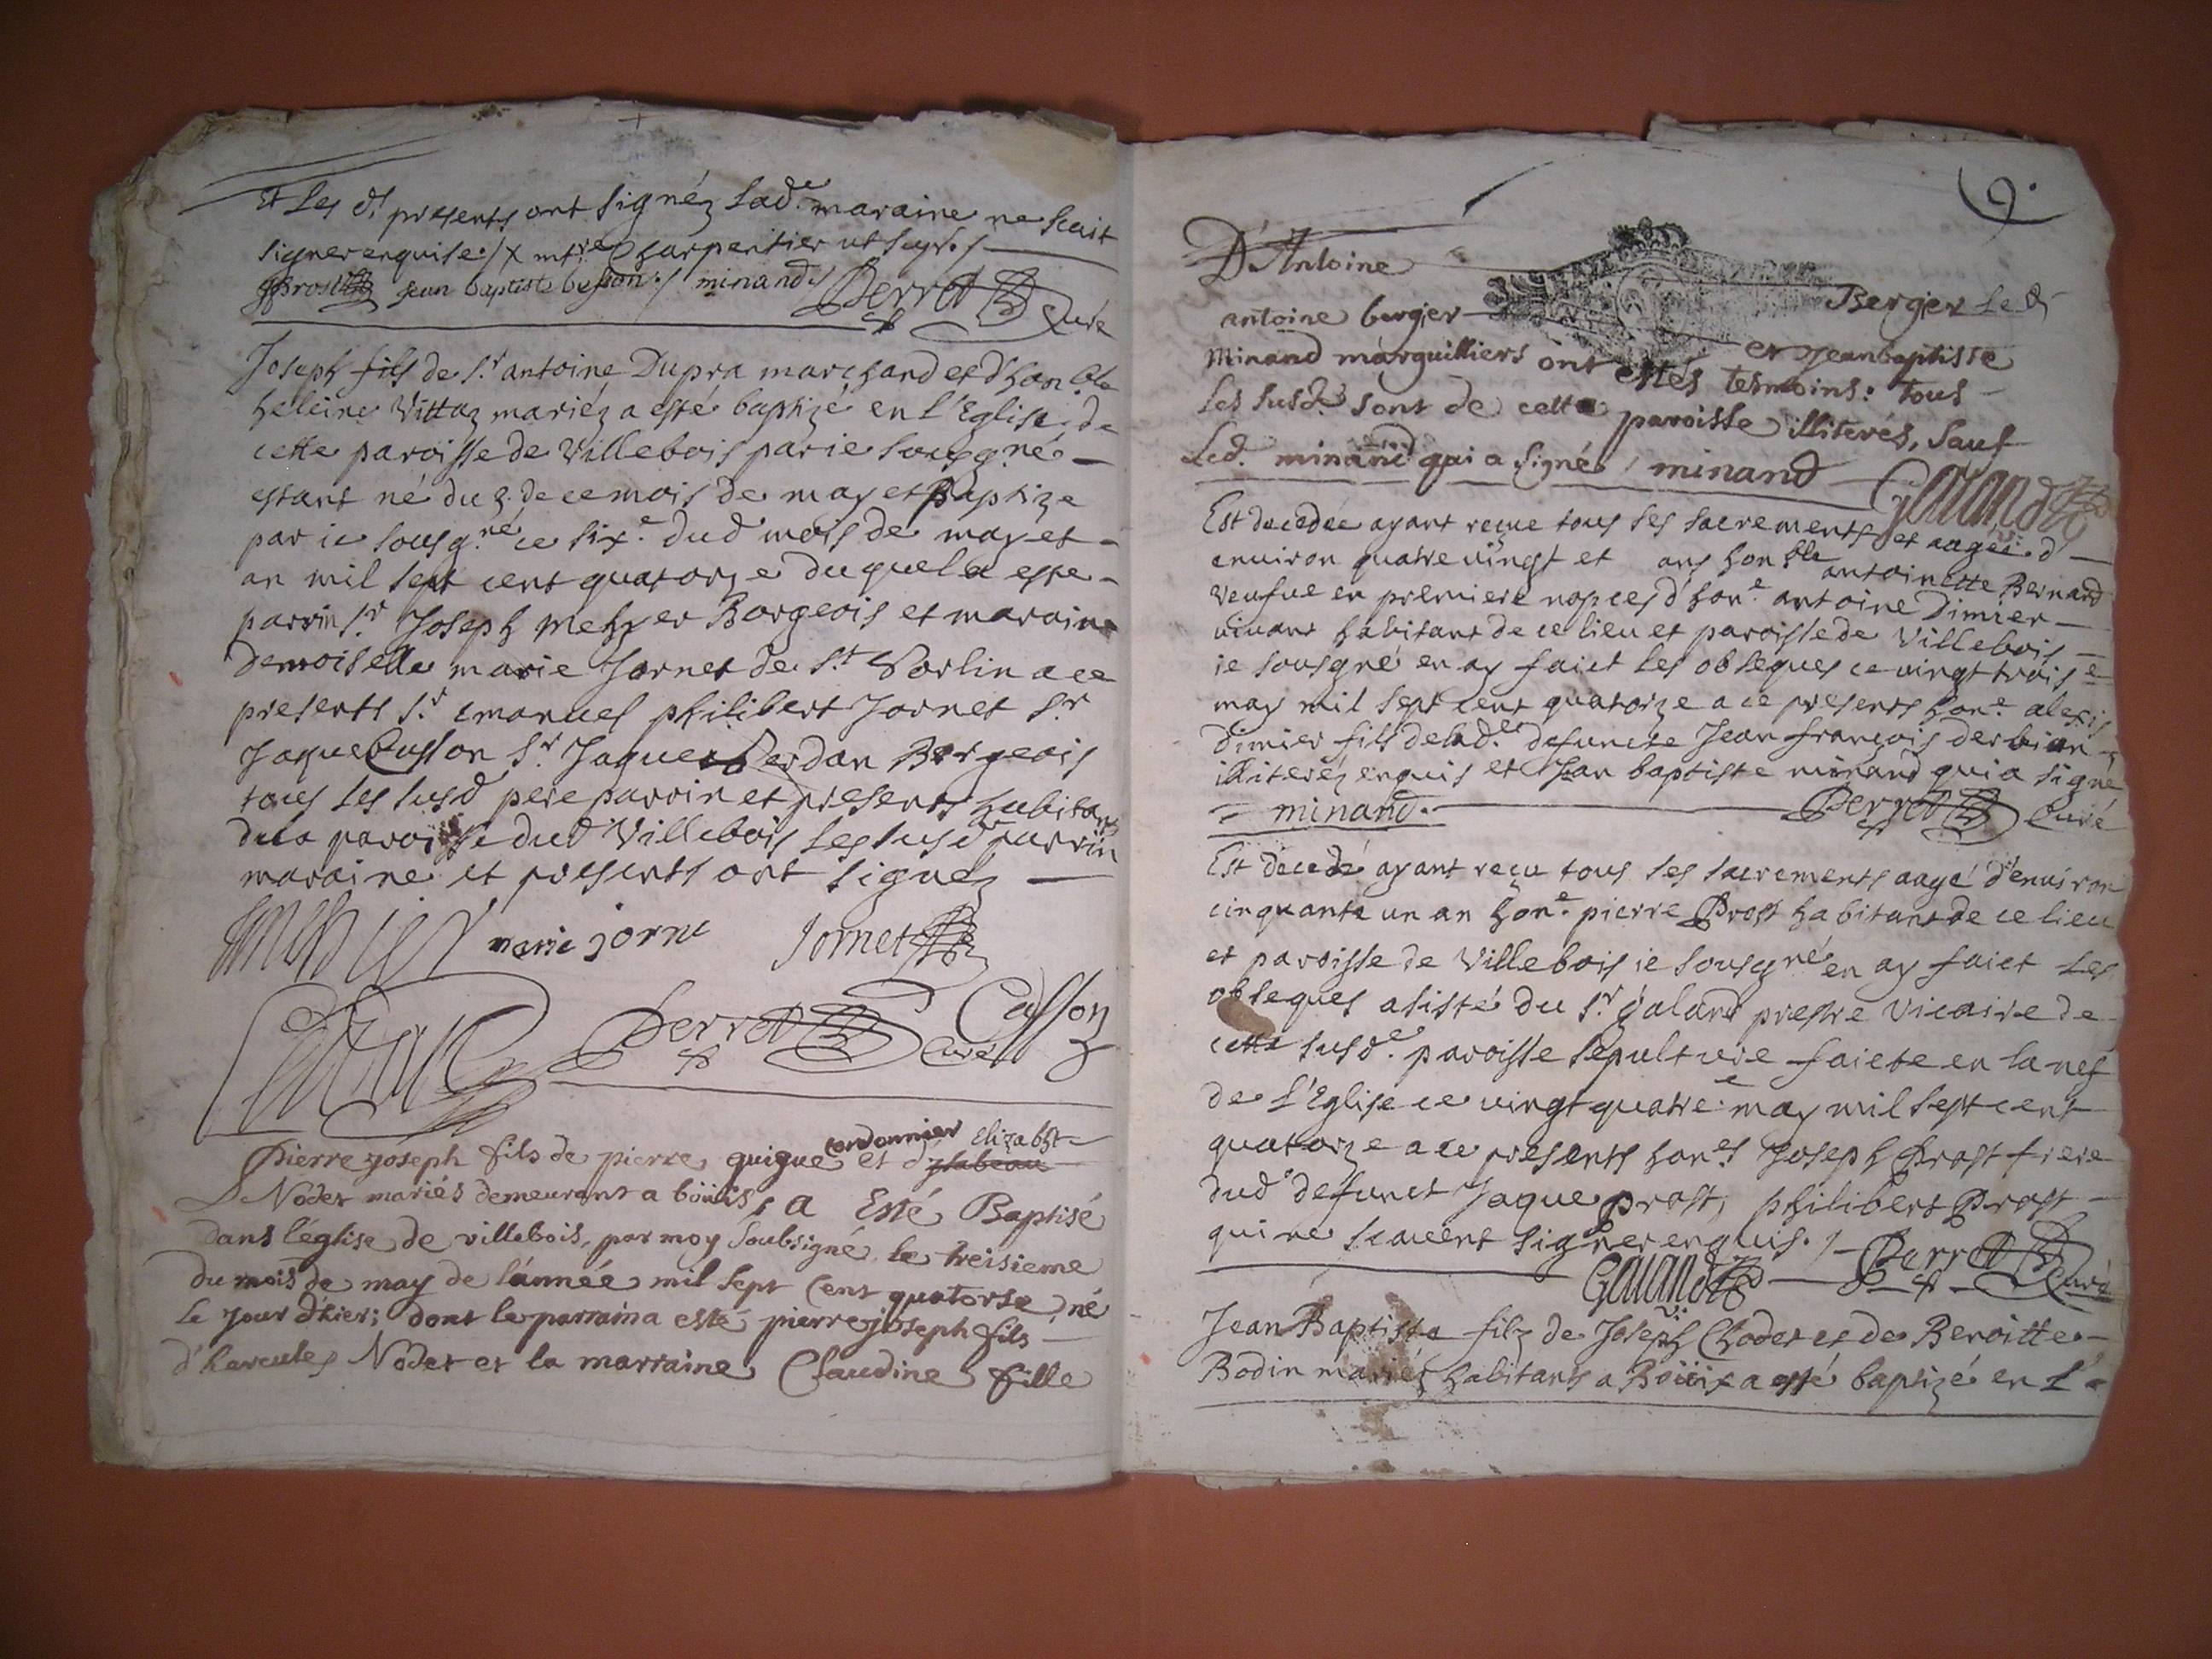 Et les d.t presents ont signéz lad.e maraine ne scait
signer enquise ./ x mtre charpentier ut supr. /
Prost jean baptiste busson ./ minand / Perret Curé
Joseph fils de s.r antoine Dupra marchand et d'hon.ble
heleine Vittoz mariéz a esté baptizé en l'Eglise de
cette paroisse de Villebois par ie sousg.né
estant né du 2. de ce mois de may et Baptize
par ie sousg.né ce six.e dud mois de may et
an mil sept cent quatorze duquel a este
parrin s.r Joseph Mehier Borgeois et maraine
demoiselle marie Jornet de s.t Sorlin a ce
presents s.r emanuel philibert Jornet s.r
Jaque Casson s.r Jaque Dardan Borgeois
tous les susd pere parrin et presents habitans
de la paroisse dud Villebois les susd parrin
maraine et presents ont signéz
Mehier marie jorne Jornet
Perret Curé Casson
cordonnier Elizabht
Pierre joseph fils de pierre guigue et d'ysabeau
Nodet mariés demeurant a boüis, a Esté Baptisé
dans l'église de villebois, par moy Soubsigné le treisieme
du mois de may de l'année mil sept cent quatorse, né
le jour d'hier; dont le parrain a esté pierre joseph fils
d'hercules Nodet et la marraine Claudine fille
9.
D'Antoine Berger led
antoine berger et Jean baptiste
Minand marguilliers ont estés tesmoins: tous
les susd.s sont de cette paroisse illiterés, sauf
led. minand qui a signé / minand Galand
Est decedée ayant recue tous ses sacrements et aagée d'
environ quatre vingt et ans hon.ble antoinette Bernand
veufue en premiere nopces d'hon.e antoine Dimier
vivant habitant de ce lieu et paroisse de Villebois
ie sousgné en ay faict les obseques ce vingt trois.e
may mil sept cent quatorze a ce presents hon.e alexis
dimier fils de lad.e defuncte Jean françois derbian
illiteréz enquis et Jean baptiste minand qui a signé
= minand. Perret Curé
Est décedé ayant reçu tous ses sacrements aagé d'environ
cinquante un an hon.e pierre Prost habitant de ce lieu
et paroisse de Villebois ie sousgné en ay faict les
obseques asisté du s.r galand prestre vicaire de
cette susd.e paroisse sepulture faicte en la nef
de l'Eglise ce vingt quatre.e may mil sept cent
quatorze a ce presents hon.es Joseph Prost frere
dud defunct Jaque prost, philibert Prost
qui ne scavent signer enquis. /
Galand Perret Curé
Jean Baptiste filz de Joseph Chodet et de Benoitte
Bodin mariéz habitants a Boüix a esté baptizé en l'